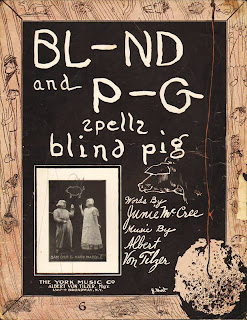 BL-ND
and
P-G
spells
blind pig
Words By
Junie McCree
Music By
Albert
Von Tilzer
THE YORK MUSIC CO
ALBERT VON TILZER, Mgr.